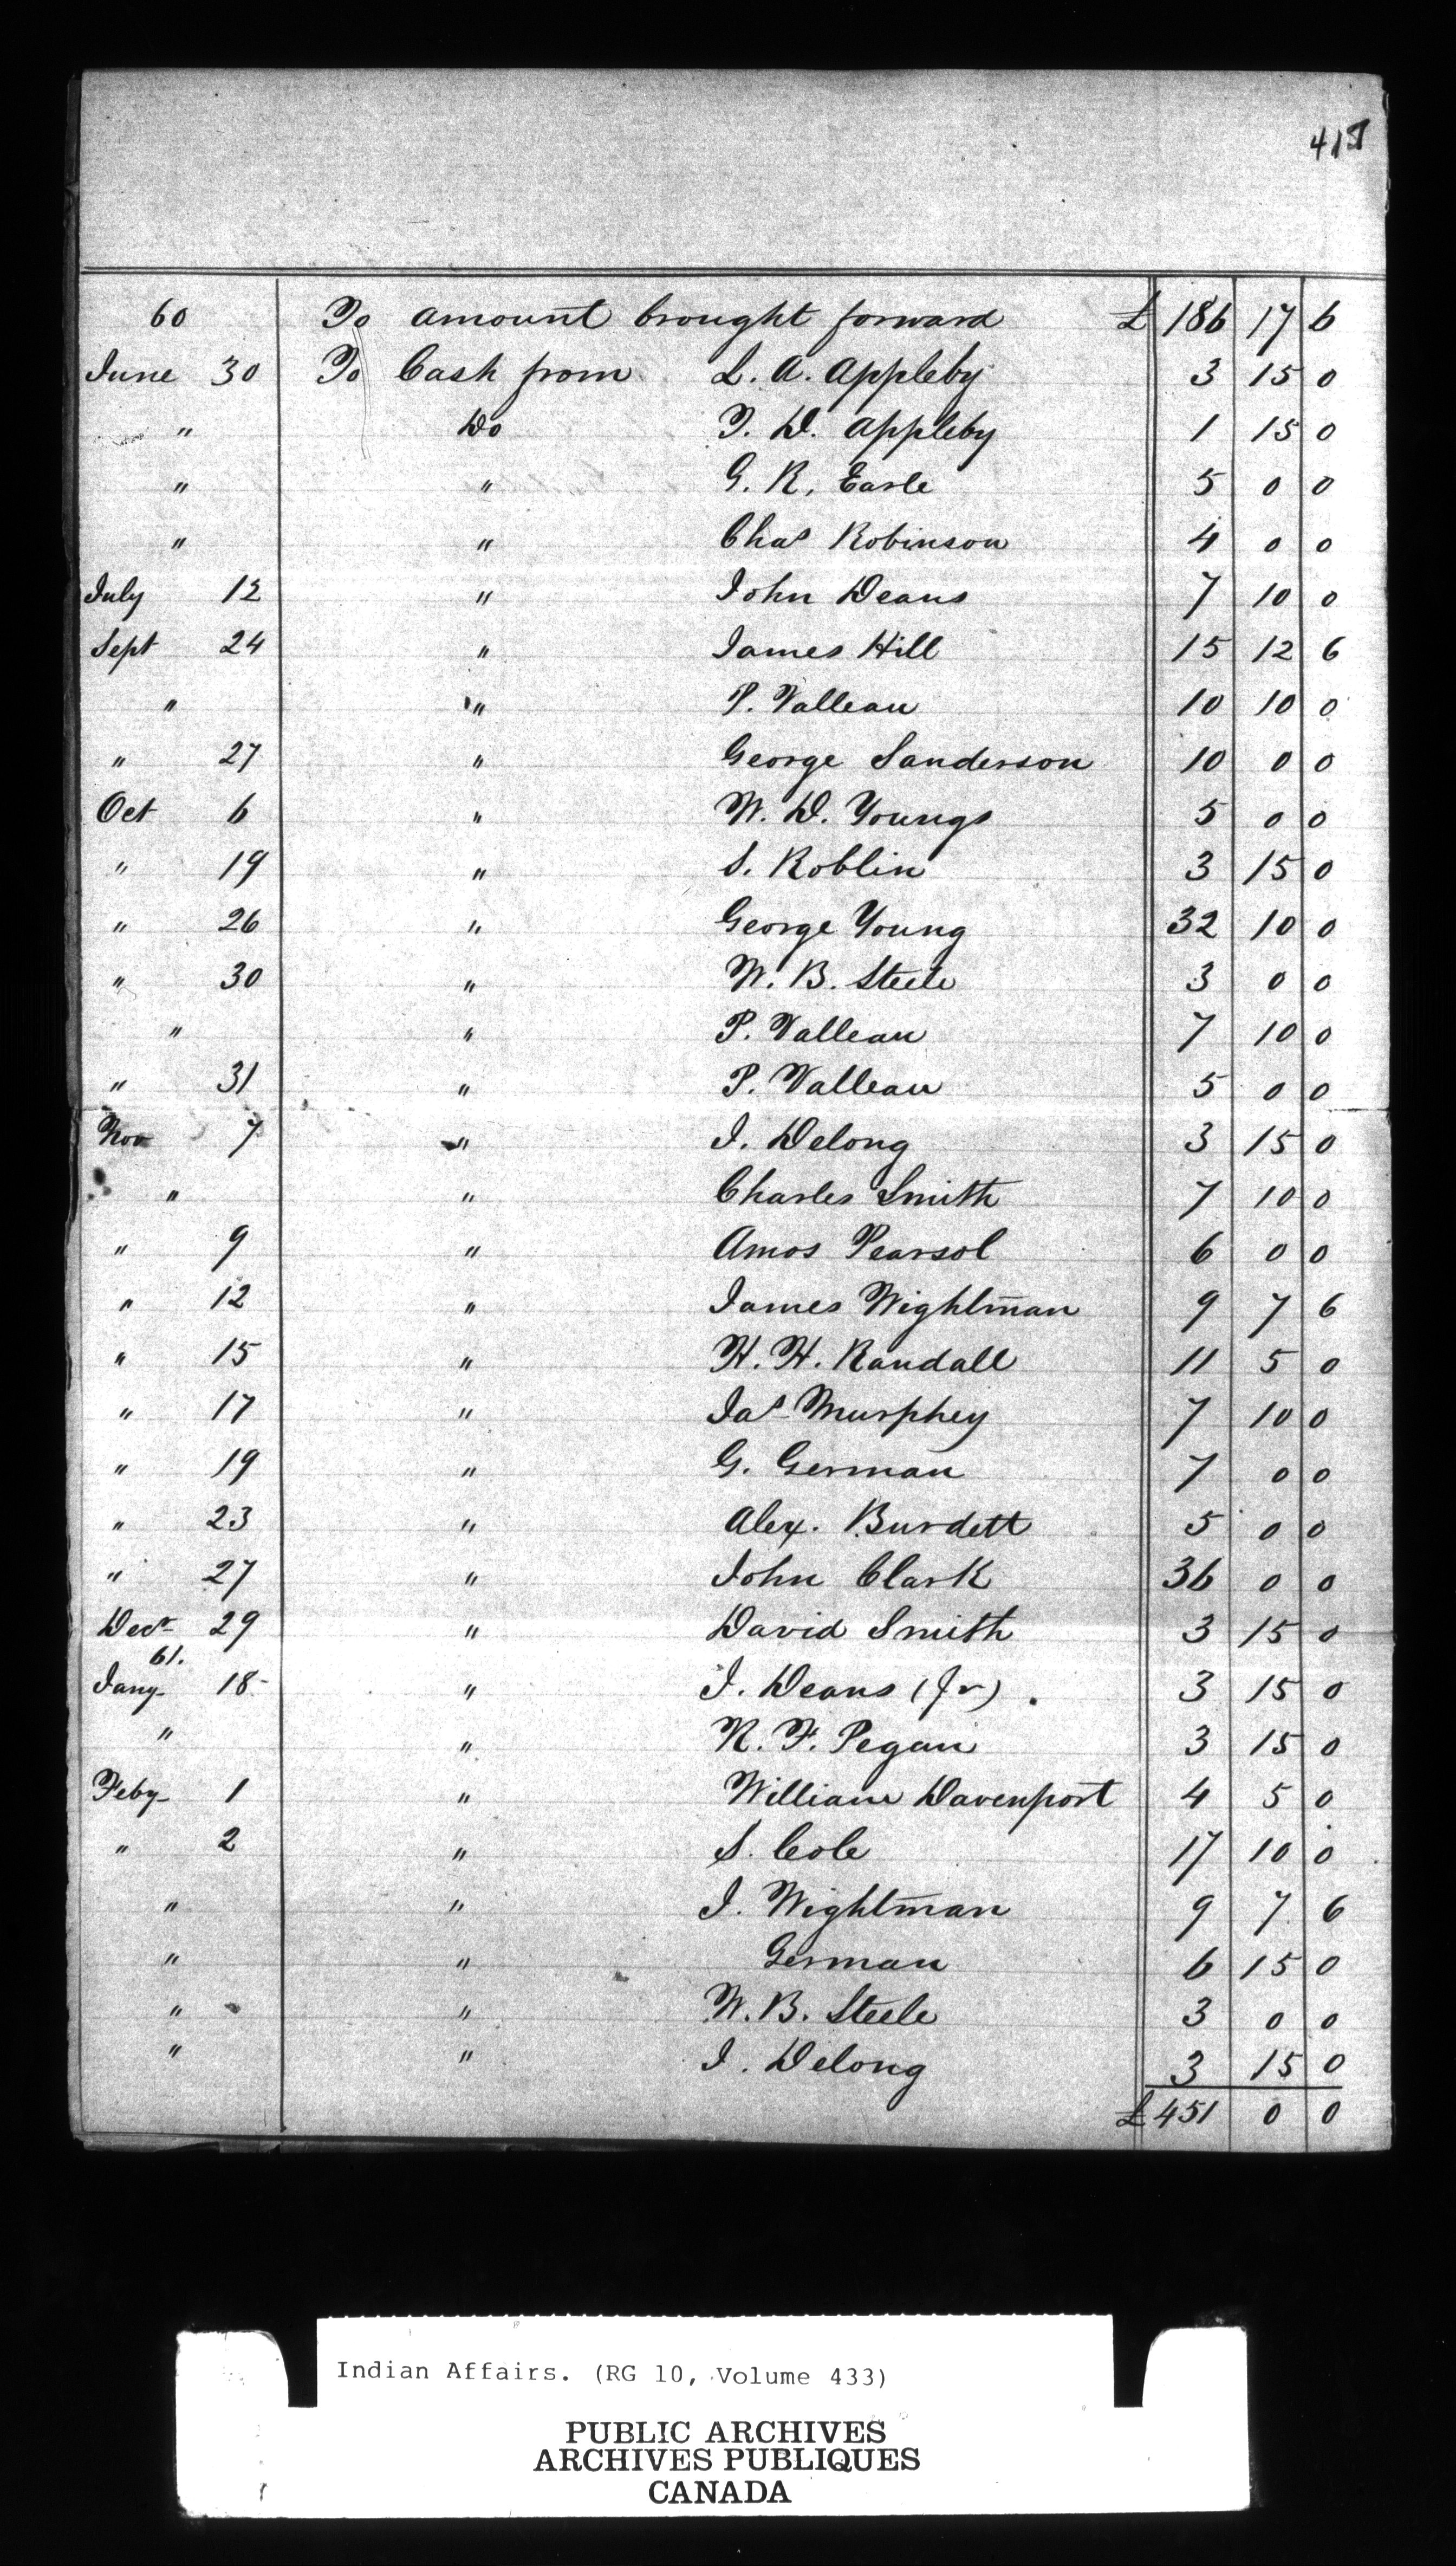 60 To amount brought forward £ 186 17 6
June 30 To Cash from L. A. Appleby 3 15 0
" Do T. D. Appleby 1 15 0
" " G. R. Earle 5 0 0
" " Chas Robinson 4 0 0
July 12 " John Deans 7 10 0
Sept 24 " James Hill 15 12 6
" " P. Valleau 10 10 0
" 27 " George Sanderson 10 0 0
Oct 6 " W. D. Youngs 5 0 0
" 19 " S. Roblin 3 15 0
" 26 " George Young 32 10 0
" 30 " W. B. Steele 3 0 0
" " P. Valleau 7 10 0
" 31 " P. Valleau 5 0 0
Nov 7 " J. Delong 3 15 0
" " Charles Smith 7 10 0
" 9 " Amos Pearsol 6 0 0
" 12 " James Wightman 9 7 6
" 15 " H. H. Randall 11 5 0
" 17 " Jas Murphey 7 10 0
" 19 " G. German 7 0 0
" 23 " Alex. Burdett 5 0 0
" 27 " John Clark 36 0 0
Decr 29 " David Smith 3 15 0
61.
Jany 18 " J. Deans (Jr) 3 15 0
" " N. F. Pegan 3 15 0
Feby 1 " William Davenport 4 5 0
" 2 " S. Cole 17 10 0
" " J. Wightman 9 7 6
" " German 6 15 0
" " W. B. Steele 3 0 0
" " J. Delong 3 15 0
£ 451 0 0
Indian Affairs. (RG 10, Volume 433)
PUBLIC ARCHIVES
ARCHIVES PUBLIQUES
CANADA